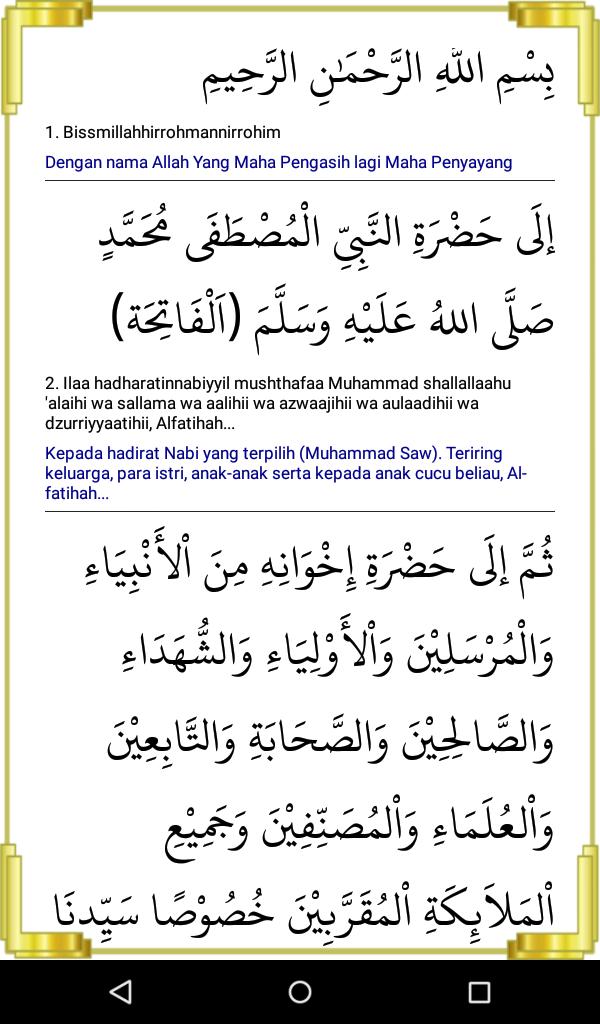 بِسْمِ اللّٰهِ الرَّحْمَـٰنِ الرَّحِيمِ
1. Bissmillahhirrohmannirrohim
Dengan nama Allah Yang Maha Pengasih lagi Maha Penyayang
إِلَى حَضْرَةِ النَّبِيِّ الْمُصْطَفَى مُحَمَّدٍ
صَلَّى اللهُ عَلَيْهِ وَسَلَّمَ (اَلْفَاتِحَة)
2. Ilaa hadharatinnabiyyil mushthafaa Muhammad shallallaahu
'alaihi wa sallama wa aalihii wa azwaajihii wa aulaadihii wa
dzurriyyaatihii, Alfatihah...
Kepada hadirat Nabi yang terpilih (Muhammad Saw). Teriring
keluarga, para istri, anak-anak serta kepada anak cucu beliau, Al-
fatihah...
ثُمَّ إِلَى حَضْرَةِ إِخْوَانِهِ مِنَ اْلأَنْبِيَاءِ
وَالْمُرْسَلِيْنَ وَاْلأَوْلِيَاءِ وَالشُّهَدَاءِ
وَالصَّالِحِيْنَ وَالصَّحَابَةِ وَالتَّابِعِيْنَ
وَاْلعُلَمَاءِ وَاْلمُصَنِّفِيْنَ وَجَمِيْعِ
اْلمَلاَئِكَةِ اْلمُقَرَّبِيْنَ خُصُوْصًا سَيِّدِنَا